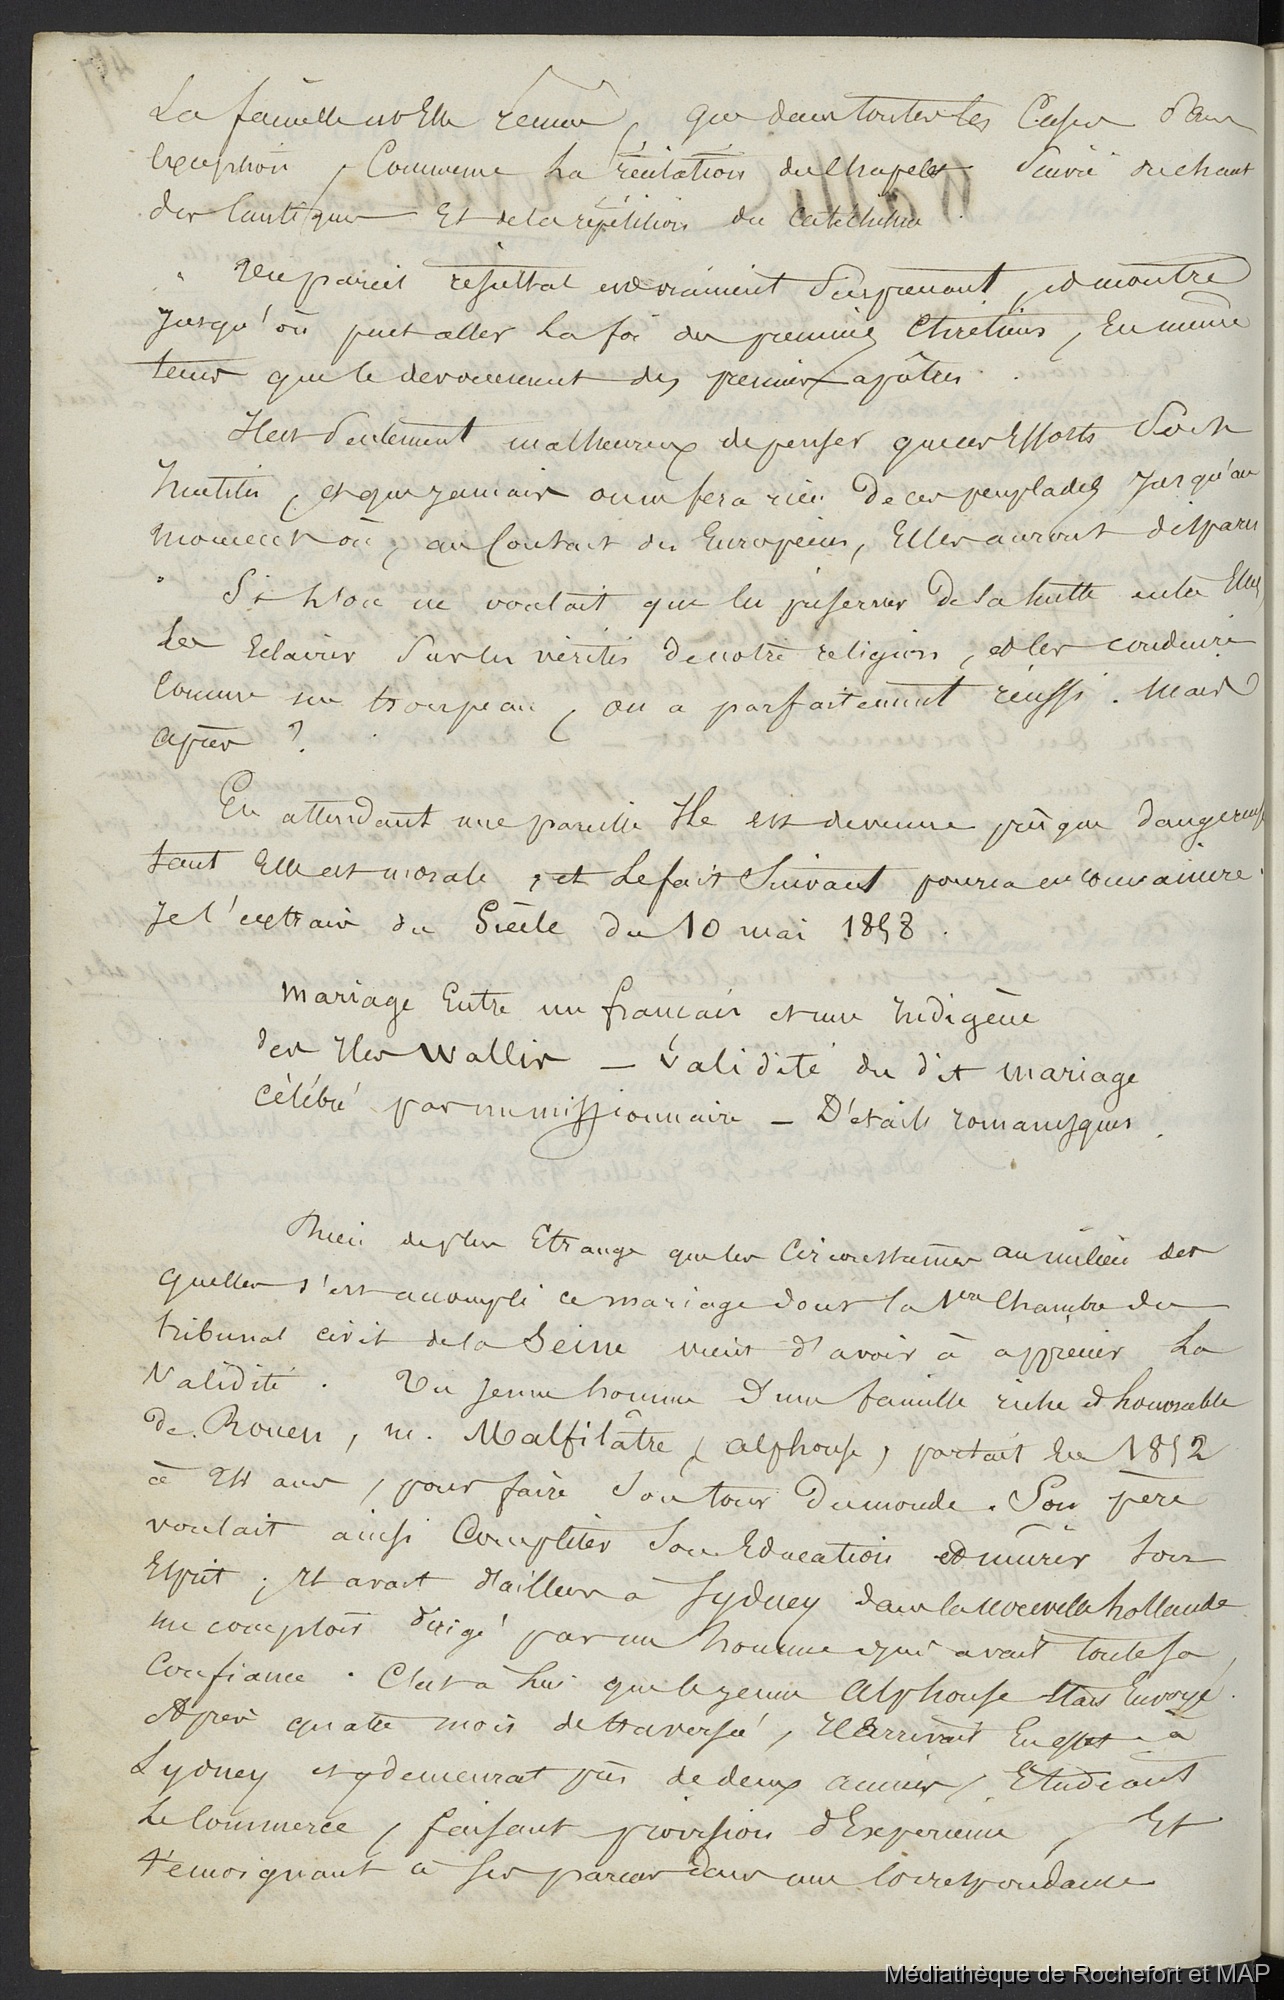 La famille est Elle réunie, que dans toutes les Cases Sans
Exception, Commence La récitation du Chapelet Suivie du chant
des Cantiques Et de la répétition du Catéchisme.
" Un pareil résultat est vraiment Surprenant, et montre
Jusqu'où peut aller La foi des premiers Chrétiens, En même
tems que le dévouement des premiers apôtres.
Il est Seulement malheureux de penser que ces Efforts Sont
Inutiles, et que jamais on ne fera rien De ces peuplades Jusqu'au
moment où, au Contact des Européens, Elles auront disparu
" Si L'on ne voulait que les préserver De la lutte entre Elles,
Les Eclairer Sur les vérités De notre religion, et les conduire
Comme un troupeau, on a parfaitement réussi. Mais
après ?
En attendant une pareille Ile est devenue presque Dangereuse
tant Elle est morale, et Le fait Suivant pourra en convaincre.
Je l'extrais du Siècle du 10 mai 1858.
Mariage Entre un français et une Indigène
des Iles Wallis — Validité du dit mariage
célébré par un missionnaire — Détails romanesques.
Rien de plus Etrange que les Circonstances au milieu des
quelles s'est accompli ce mariage dont la 1ère Chambre du
tribunal civil de la Seine vient d'avoir à apprécier La
Validité. Un jeune homme D'une famille riche et honorable
De Rouen, M. Malfilâtre (Alphonse) partait En 1852
à 24 ans, pour faire Son tour Du monde. Son père
voulait ainsi Compléter Son Education et mûrir Son
Esprit; Il avait d'ailleurs à Sydney dans la nouvelle hollande
un comptoir dirigé par un homme qui avait toute sa
Confiance. C'est à Lui que le jeune Alphonse était Envoyé.
Après quatre mois de traversée, Il Arrivait En effet à
Sydney et y demeurait près de deux années, Etudiant
Le Commerce, faisant provision d'Expérience, Et
témoignant à ses parens dans une Correspondance
Médiathèque de Rochefort et MAP